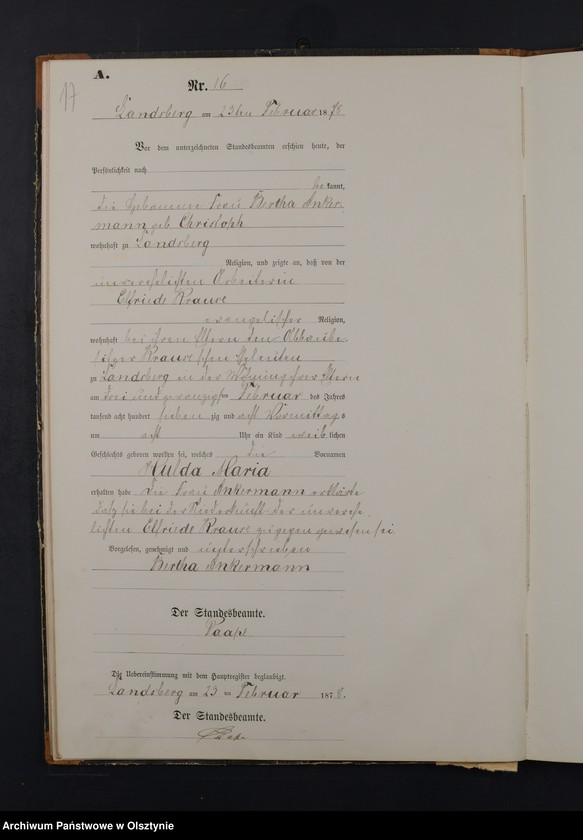 17
A.
Nr. 16
Landsberg am 23ten Februar 1878
Vor dem unterzeichneten Standesbeamten erschien heute, der
Persönlichkeit nach
bekannt,
die Hebamme Frau Bertha Anker-
mann geb. Christoph
wohnhaft zu Landsberg
Religion, und zeigte an, daß von der
unverehelichten Arbeiterin
Elfriede Krause
evangelischer Religion,
wohnhaft bei ihren Eltern den
Krause'schen Eheleuten
zu Landsberg in der Wohnung ihrer Eltern
am drei und zwanzigsten Februar des Jahres
tausend acht hundert siebenzig und acht Vormittags
um acht Uhr ein Kind weiblichen
Geschlechts geboren worden sei, welches die Vornamen
Hulda Maria
erhalten habe Die Frau Ankermann erklärte
daß sie bei der Niederkunft der unverehe-
lichten Elfriede Krause zugegen gewesen sei
Vorgelesen, genehmigt und unterschrieben
Bertha Ankermann
Der Standesbeamte.
Die Uebereinstimmung mit dem Hauptregister beglaubigt.
Landsberg am 23 ten Februar 1878.
Der Standesbeamte.
Archiwum Państwowe w Olsztynie